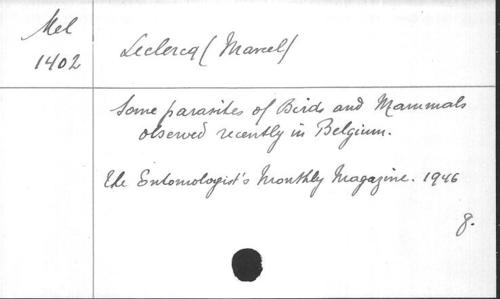 Mel
1402
Leclercq (Marcel)
Some parasites of Birds and Mammals
observed recently in Belgium.
the Entomologist's Monthly Magazine. 1946
8.